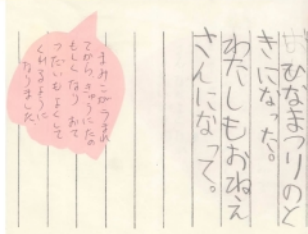 ひなまつりのと
きになった。
わたしもおねえ
さんになって。
まみこがうまれ
てから、きゅうにたの
もしくなり おて
つだいもよくして
くれるように
なりました。